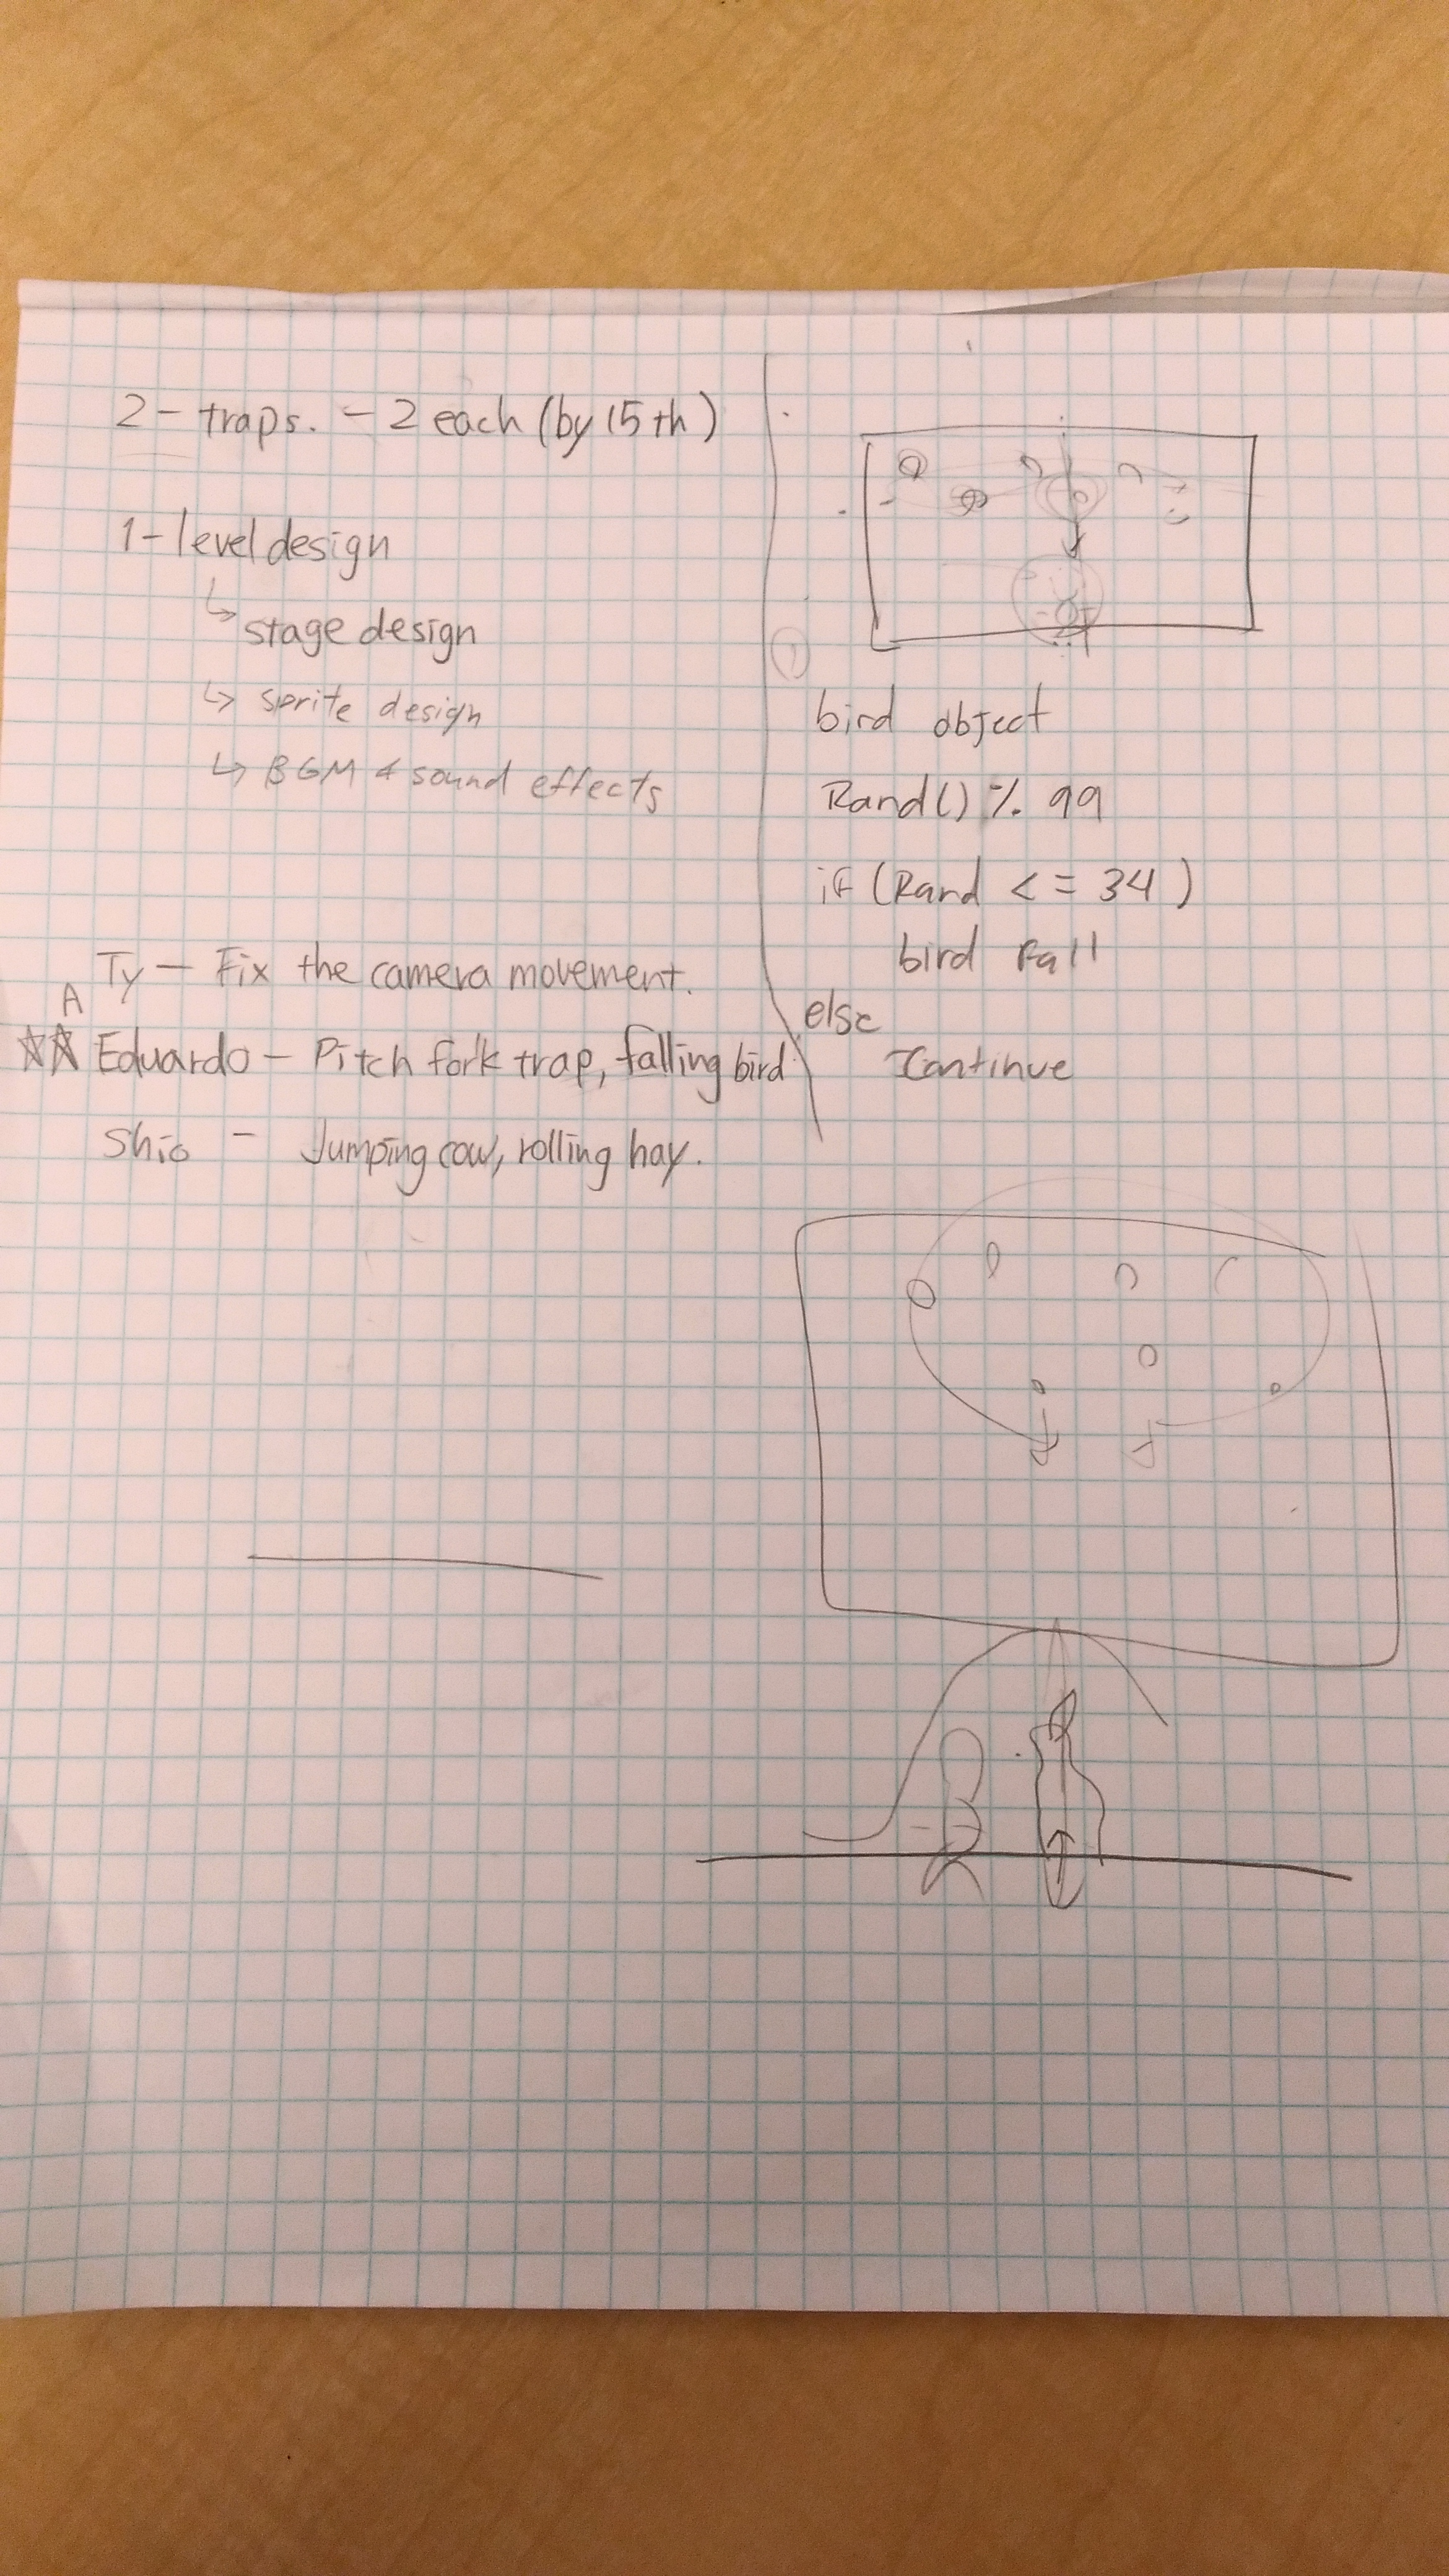 2 - traps. - 2 each (by 15th)
1 - level design
↳ stage design
↳ sprite design
↳ BGM & sound effects
Ty - Fix the camera movement.
A
☆☆ Eduardo - Pitch fork trap, falling bird
Shio - Jumping cow, rolling hay.
1
bird object
Rand() % 99
if (Rand <= 34)
bird fall
else
Continue